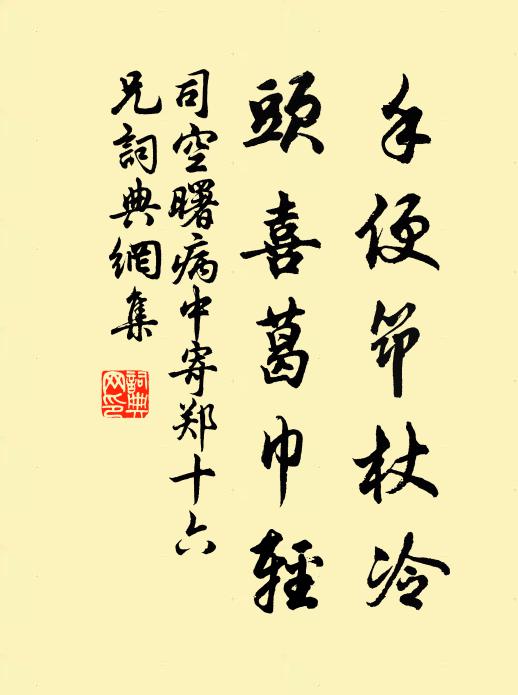 手便筇杖冷
頭喜葛巾輕
司空曙病中寄郑十六
兄詞典網集
詞典網印